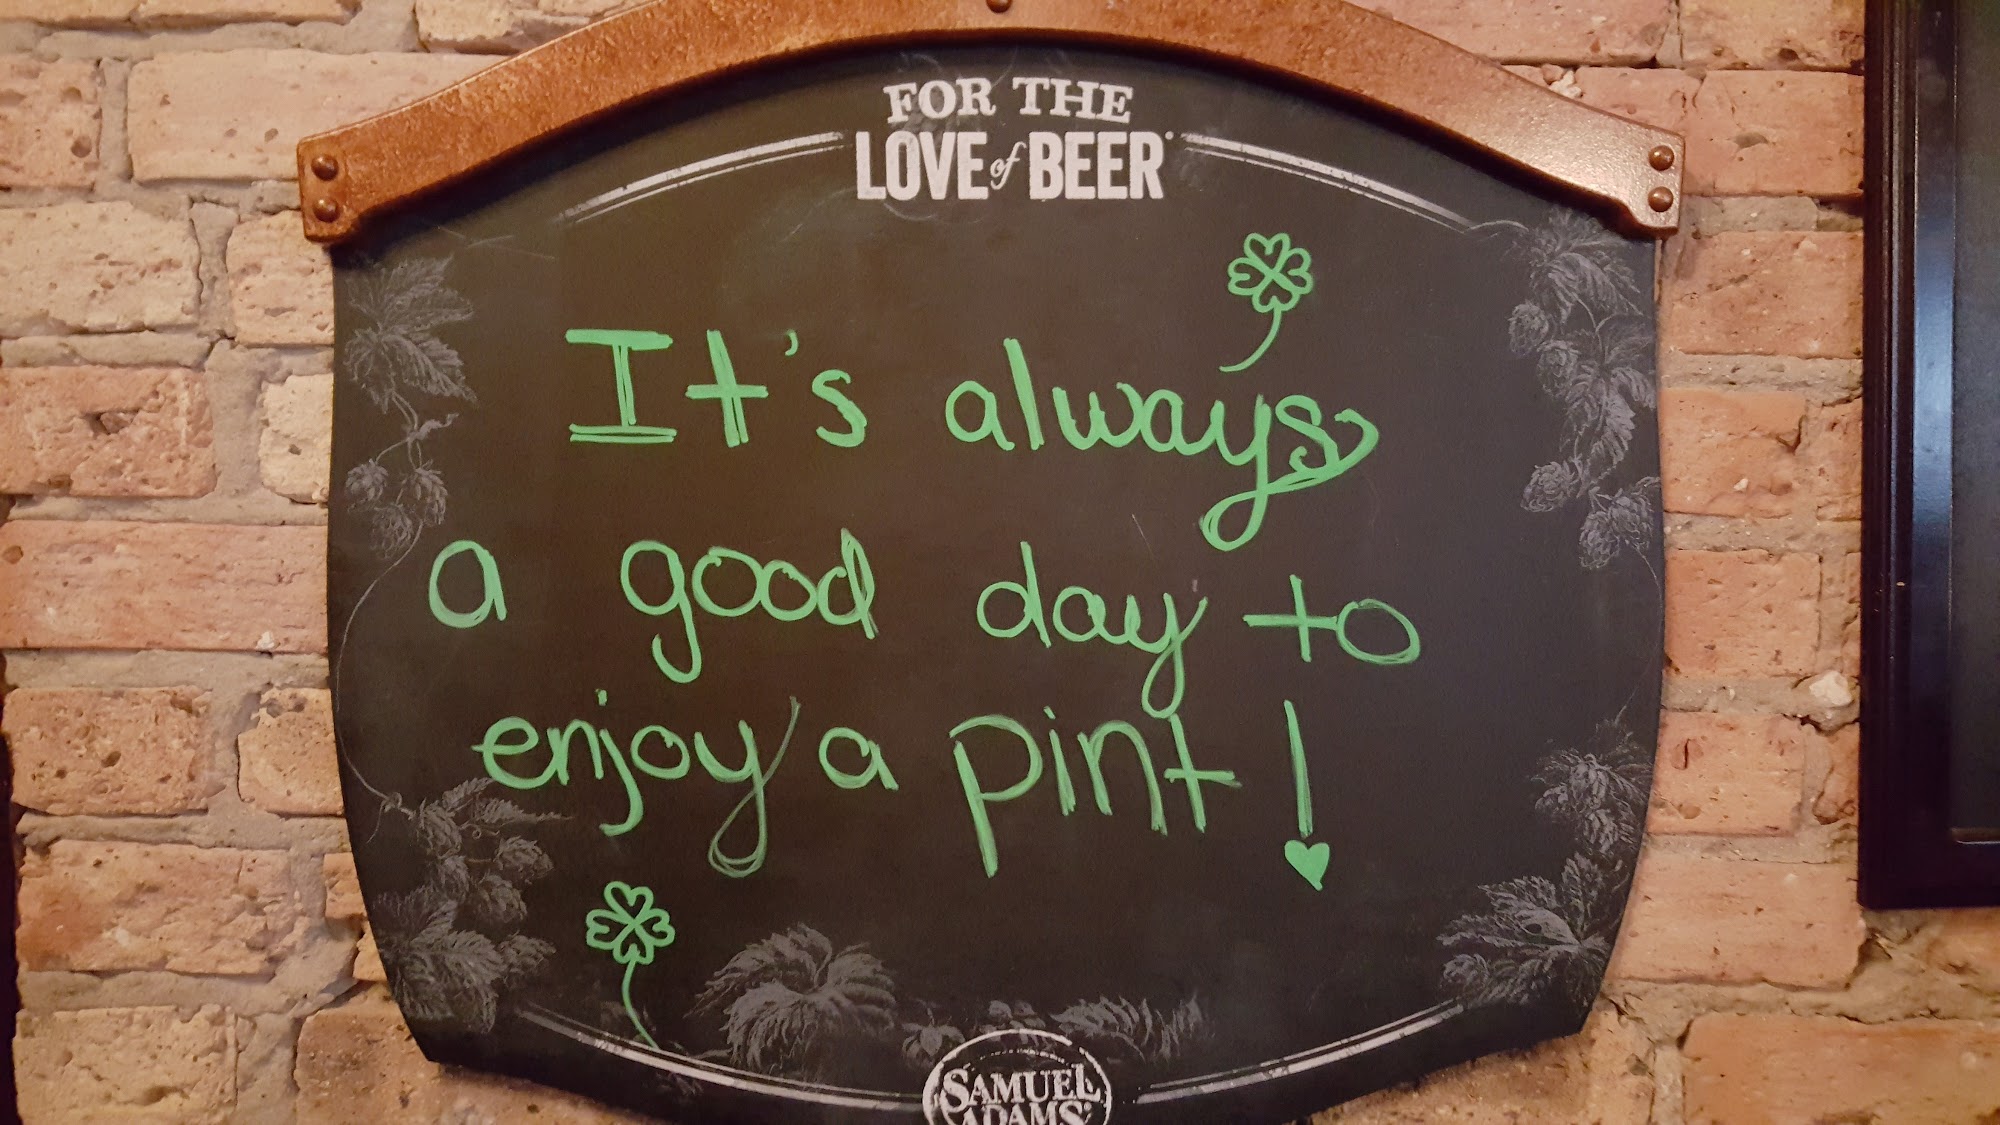 FOR THE
LOVE of BEER
It's always
a good day to
enjoy a pint!
SAMUEL
ADAMS